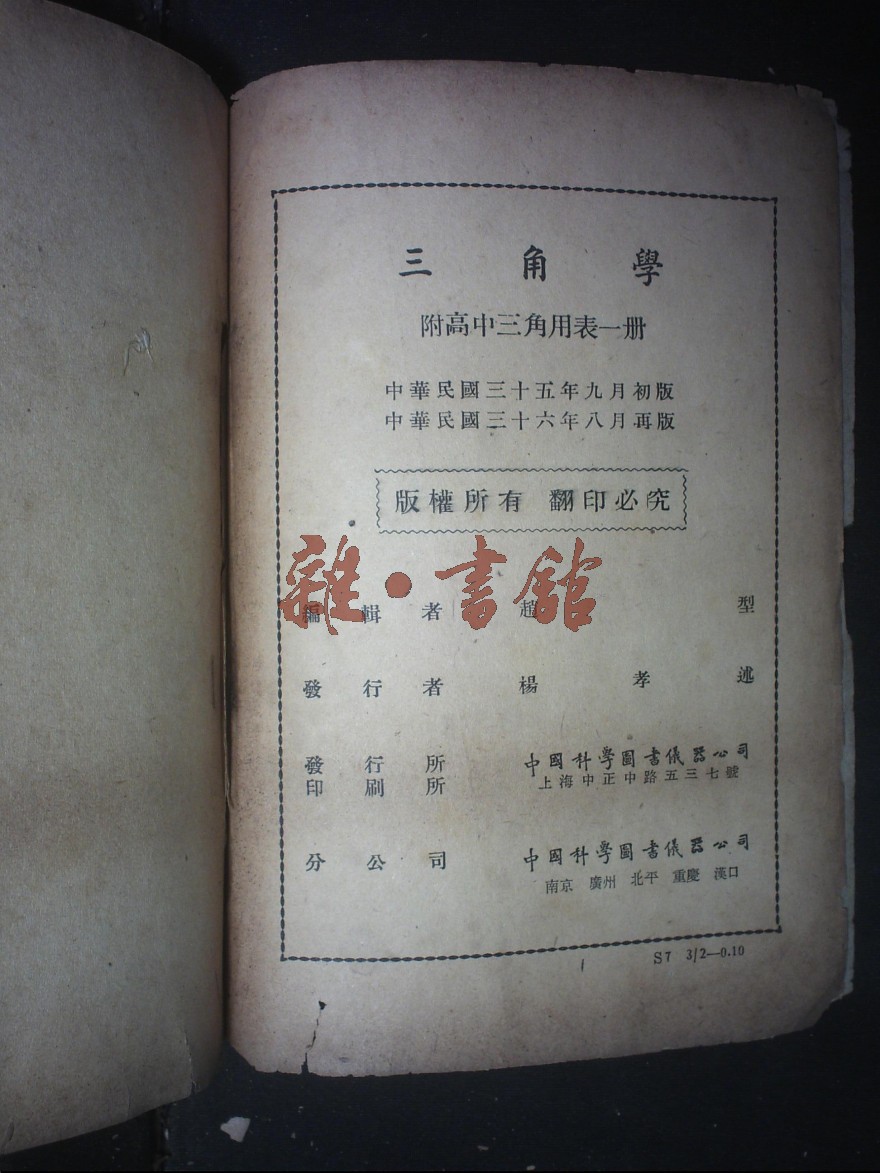 三角學
附高中三角用表一册
中華民國三十五年九月初版
中華民國三十六年八月再版
版權所有 翻印必究
雜·書館
編輯者 趙型
發行者 楊孝述
發行所 中國科學圖書儀器公司
印刷所 上海中正中路五三七號
分公司 中國科學圖書儀器公司
南京 廣州 北平 重慶 漢口
S7 3/2—0.10